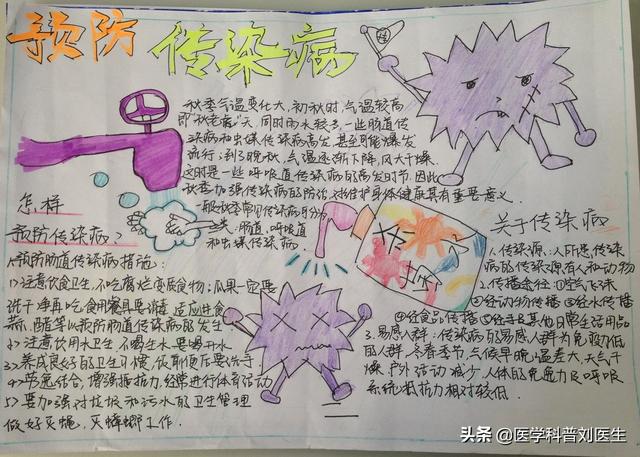 预防
传染病
秋季气温变化大,初秋时,气温较高
即"秋老虎"天,同时雨水较多,一些肠道传
染病和虫媒传染病高发,甚至可能爆发
流行;到了晚秋,气温逐渐下降,风大干燥,
这时是一些呼吸道传染病的高发时节.因此
秋季加强传染病的防治,对维护身体健康具有重要意义.
一般秋季常见传染病可分为
:肠道,呼吸道
和虫媒传染病.
怎样
预防传染病?
1、预防肠道传染病措施:
1>注意饮食卫生,不吃腐烂变质食物;瓜果一定要
洗干净再吃,食用餐具要消毒,适应进食
蒜、醋等以预防肠道传染病的发生
2>注意饮用水卫生,不喝生水,要喝开水
3>养成良好的卫生习惯,饭前便后要洗手
4>劳逸结合,增强抵抗力,经常进行体育活动
5>要加强对垃圾和污水的卫生管理
做好灭蝇,灭蟑螂工作.
关于传染病
1、传染源:人所患传染
病的传染源有人和动物
2、传播途径:①空气飞沫
②经动物传播 ③经水传播
④经食品传播 ⑤经手及其他日常生活用品
3、易感人群:传染病的易感人群为免疫力低
的人群,冬春季节,气候早晚温差大,天气干
燥,户外活动减少,人体的免疫力及呼吸
系统抵抗力相对较低.
头条 @医学科普刘医生